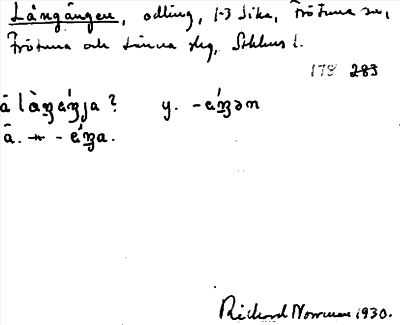 Långängen, odling, 1-3 Sika, Frötuna sn,
Frötuna och Länna slg, Sthlms l.
178 283
å làŋɛ́ŋja? y. -ɛ́ŋən
å. ⁓ - ɛ́ŋa.
Rickard Norrman 1930.